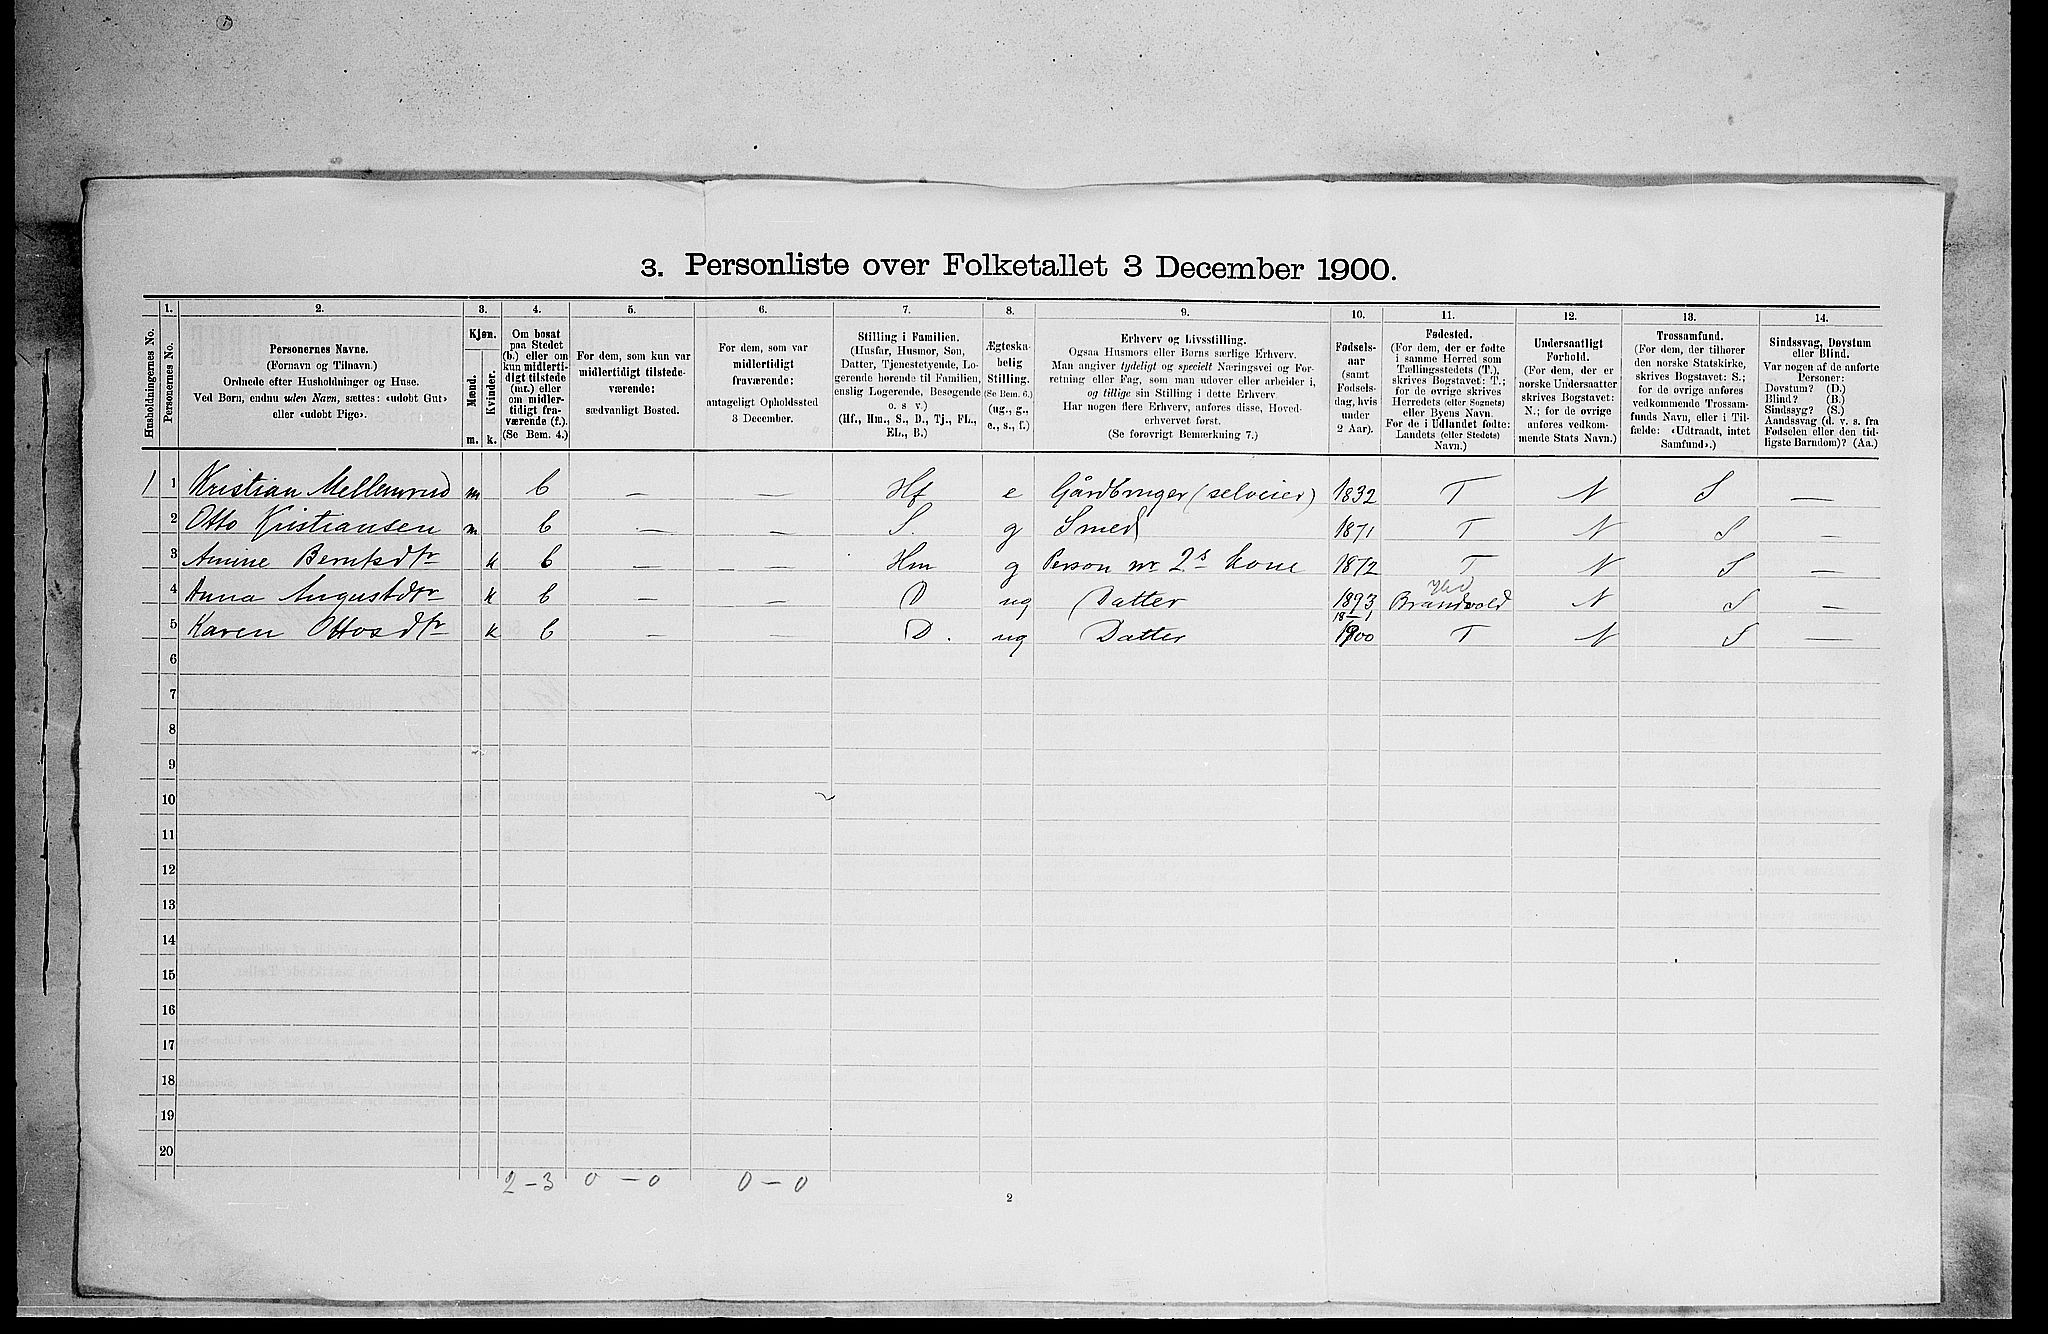 3. Personliste over Folketallet 3 December 1900.
1. 2. 3. 4. 5. 6. 7. 8. 9. 10. 11. 12. 13. 14.
Husholdningernes No.
Personernes No.
Personernes Navne.
(Fornavn og Tilnavn.)
Ordnede efter Husholdninger og Huse.
Ved Børn, endnu uden Navn, sættes: «udøbt Gut»
eller «udøbt Pige».
Kjøn.
Mænd.
Kvinder.
m. k.
Om bosat
paa Stedet
(b.) eller om
kun midlerti-
digt tilstede
(mt.) eller
om midler-
tidigt fra-
værende (f.).
(Se Bem. 4.)
For dem, som kun var
midlertidigt tilstede-
værende:
sædvanligt Bosted.
For dem, som var
midlertidigt
fraværende:
antageligt Opholdssted
3 December.
Stilling i Familien.
(Husfar, Husmor, Søn,
Datter, Tjenestetyende, Lo-
gerende hørende til Familien,
enslig Logerende, Besøgende
o. s v.)
(Hf., Hm., S., D., Tj., FL.,
EL., B.)
Ægteska-
belig
Stilling.
(Se Bem. 6.)
(ug., g.,
e., s., f.)
Erhverv og Livsstilling.
Ogsaa Husmors eller Børns særlige Erhverv.
Man angiver tydeligt og specielt Næringsvei og For-
retning eller Fag, som man udover eller arbeider i,
og tillige sin Stilling i dette Erhverv.
Har nogen flere Erhverv, anføres disse, Hoved-
erhvervet først.
(Se forøvrigt Bemærkning 7.)
Fødsels-
aar
(samt
Fødsels-
dag, hvis
under
2 Aar).
Fødested.
(For dem, der er fødte
i samme Herred som
Tællingsstedets (T.),
skrives Bogstavet: T.;
for de øvrige skrives
Herredets (eller Sognets)
eller Byens Navn.
For de i Udlandet fødte:
Landets (eller Stedets)
Navn.)
Undersaatligt
Forhold.
(For dem, der er
norske Undersaatter
skrives Bogstavet:
N.; for de øvrige
anføres vedkom-
mende Stats Navn.)
Trossamfund.
(For dem, der tilhører
den norske Statskirke,
skrives Bogstavet: S.;
for de øvrige anføres
vedkommende Trossam-
funds Navn, eller i Til-
fælde: «Udtraadt, intet
Samfund».)
Sindssvag, Døvstum
eller Blind.
Var nogen af de anførte
Personer:
Døvstum? (D.)
Blind? (B.)
Sindssyg? (S.)
Aandssvag (d. v. s. fra
Fødselen eller den tid-
ligste Barndom)? (Aa.)
1 1 Kristian Mellemrud m b — — Hf e Gårdbruger (selveier) 1832 T N S —
2 Otto Kristiansen m b — — S. g Smed 1871 T N S —
3 Amine Berntsdtr k b — — Hm g Person nr 2.s kone 1872 T N S —
4 Anna Augustdtr k b — — D ug Datter 1893 Brandvold N S —
5 Karen Ottosdtr k b — — D. ug Datter 18—1 1900 T N S —
6
7
8
9
10
11
12
13
14
15
16
17
18
19
20
2–3 0–0 0–0
2